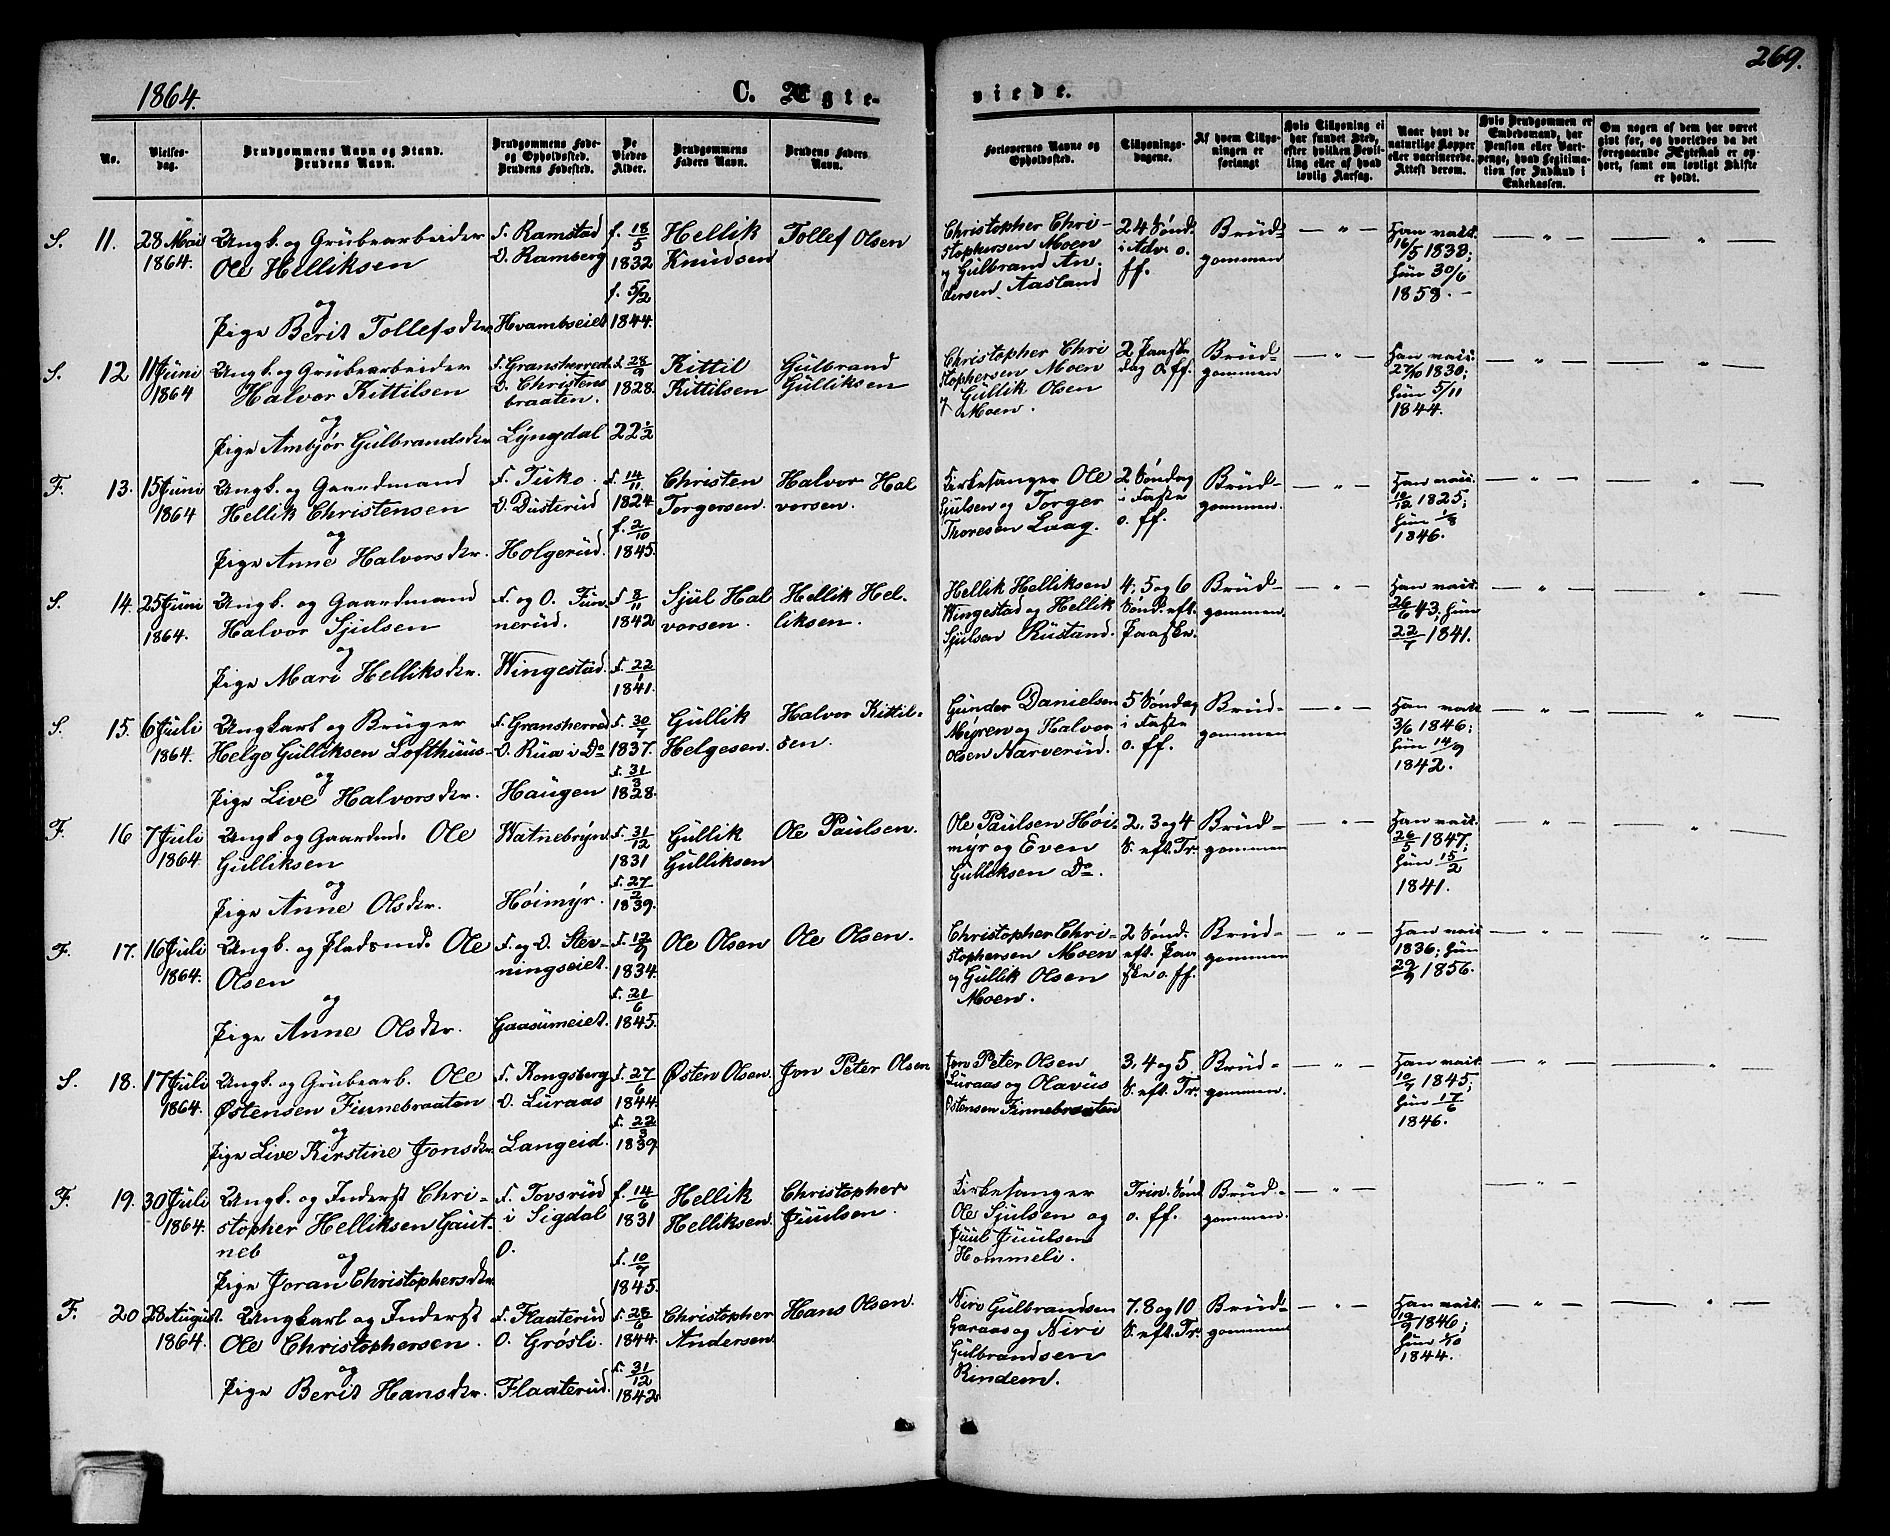 1864.
C. Ægte-
viede.
269.
No.
Vielses-
dag.
Brudgommens Navn og Stand.
Brudens Navn.
Brudgommens Føde-
og Opholdssted.
Brudens Fødested.
De
Viedes
Alder.
Brudgommens
Faders Navn.
Brudens Faders
Navn.
Forlovernes Navne og
Opholdssted.
Tillysnings-
dagene.
Af hvem Tillys-
ningen er
forlangt
Hvis Tillysning ei
har fundet Sted,
efter hvilken Bevil-
ling eller af hvad
lovlig Aarsag.
Naar havt de
naturlige Kopper
eller vaccinerede.
Attest derom.
Hvis Brudgommen er
Embedsmand, har
Pension eller Vart-
penge, hvad Legitima-
tion for Indskud i
Enkekassen.
Om nogen af dem har været
gift før, og hvorledes da det
foregaaende Ægteskab er op-
hørt, samt om lovligt Skifte
er holdt.
S. 11. 28 Mai
1864.
Ungk. og Grubearbeider
Ole Helliksen
og
Pige Berit Tollefsdtr.
F. Ramstad
O. Ramberg
Hvambseiet
f. 18/5
1832
f. 5/2
1844.
Hellik
Knudsen
Tollef Olsen
Christopher Chri-
stophersen Moen
og Gulbrand An-
dersen Aasland
2 4 Sønd.
i Adv. o.
ff.
Brud-
gommen
— " —
Han vacc.
16/5 1838;
hun 30/6
1858. -
— " —
— " —
S. 12 11 Juni
1864
Ungk. og Grubearbeider
Halvor Kittilsen
og
Pige Ambjør Gulbrandsdtr.
F. Gransherred
O. Christens
braaten.
Lyngdal
f. 28/9
1828.
22 1/2
Kittil
Kittilsen
Gulbrand
Gulliksen
Christopher Chri
stophersen Moen
og Gullik Olsen
Moen.
2 Paaske
dag o. ff.
Brud-
gommen
— " —
Han vacc.
27/10 1830;
hun 5/11
1844.
— " —
— " —
F. 13. 15 Juni
1864
Ungk. og Gaardmand
Hellik Christensen
og
Pige Anne Halvorsdtr.
F. Tuko.
O. Dusterud
Holgerud.
f. 14/11
1824
f. 2/10
1845.
Christen
Torgersen.
Halvor Hal
vorsen.
Kirkesanger Ole
Sjulsen og Torger
Thoresen Laag.
2 Søndag
i Faste
o. ff.
Brud-
gommen.
— " —
Han vacc.
10/12 1825;
hun 1/8
1846.
— " —
— " —
S. 14. 25 Juni
1864.
Ungk. og Gaardmand
Halvor Sjulsen
og
Pige Mari Helliksdtr.
F. og O. Fun-
nerud.
Wingestad.
f 8/11
1842
f. 22/1
1841.
Sjul Hal
vorsen.
Hellik Hel-
liksen.
Hellik Helliksen
Wingestad og Hellik
Sjulsen Rustand.
4, 5 og 6
Sønd. eft.
Paaske.
Brud-
gommen.
— " —
Han vacc.
26/6 43; hun
22/7 1841.
— " —
— " —
S. 15. 6 Juli
1864.
Ungkarl og Bruger
Helge Gulliksen Lofthuus
og
Pige Live Halvorsdtr.
F. Gransherred
O. Rua i Do
Haugen
f. 30/7
1837.
f. 31/3
1828.
Gullik
Helgesen.
Halvor Kittil-
sen.
Gunder Danielsen
Myren og Halvor
Olsen Narverud.
5 Søndag
i Faste
o. ff.
Brud-
gommen
— " —
Han vacc.
3/6 1846;
hun 14/9
1842.
— " —
— " —
F. 16 7 Juli
1864.
Ungk og Gaardmd. Ole
Gulliksen
og
Pige Anne Olsdtr.
Watnebryn
Høimyr.
f. 31/12
1831
f. 27/2
1839.
Gullik
Gulliksen
Ole Paulsen.
Ole Paulsen Høi-
myr og Even
Gulliksen Do.
2, 3 og 4
S. eft. Tr.
Brud-
gommen
— " —
Han vacc.
26/5 1847;
hun 15/2
1841.
— " —
— " —
F. 17. 16 Juli
1864.
Ungk. og Pladsmd. Ole
Olsen
og
Pige Anne Olsdtr.
F. og O. Ster-
ningseiet.
Gaasumeiet.
f. 12/9
1834.
f. 21/6
1845.
Ole Olsen
Ole Olsen.
Christopher Chri-
stophersen Moen
og Gullik Olsen
Moen.
2 Sønd.
eft. Paa-
ske o. ff.
Brud-
gommen
— " —
Han vacc
1836; hun
29/9 1856.
— " —
— " —
S. 18. 17 Juli
1864.
Ungk. og Grubearb. Ole
Østensen Finnebraaten
og
Pige Live Kirstine Jonsdtr.
F. Kongsberg
O. Luraas
Langeid.
f. 27/6
1844.
f. 22/3
1839
Østen Olsen.
Jon Peter Olsen
Jon Peter Olsen
Luraas og Olavus
Østensen Finnebraaten
3, 4 og 5.
S. eft. Tr.
Brud-
gommen.
— " —
Han vacc.
10/7 1845;
hun 17/6
1846.
— " —
— " —
F. 19. 30 Juli
1864.
Ungk. og Inderst Chri-
stopher Helliksen Gaut-
neb
og
Pige Joran Christophersdtr
F. Tovsrud
i Sigdal
O.
f. 14/6
1831
f. 10/7
1845.
Hellik
Helliksen.
Christopher
Juulsen.
Kirkesanger
Ole Sjulsen og
Juul Juulsen
Hommeli.
Trin. Sønd
o. ff.
Brud-
gommen.
— " —
— " —
F. 20 28 August.
1864.
Ungkarl og Inderst
Ole Christophersen.
og
Pige Berit Hansdtr.
F. Flaaterud
O. Grøsli.
Flaaterud.
f. 28/6
1844.
f. 31/12
1842
Christopher
Andersen
Hans Olsen.
Niri Gulbrandsen
Garaas og Niri
Gulbrandsen
Rindem.
7. 8 og 10
S. eft. Tr.
Brud-
gommen
— " —
Han vacc.
12/9 1846;
hun 1/10
1844.
— " —
— " —